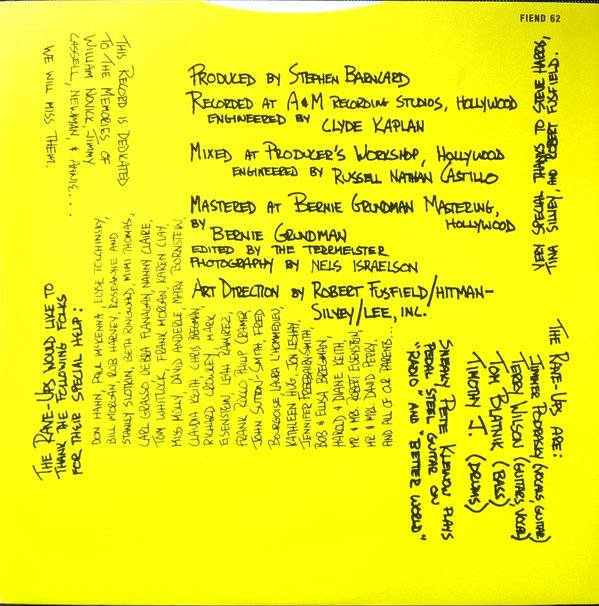 FIEND 62
PRODUCED BY STEPHEN BARNCARD
RECORDED AT A&M RECORDING STUDIOS, HOLLYWOOD
ENGINEERED BY
CLYDE KAPLAN
MIXED AT PRODUCER'S WORKSHOP, HOLLYWOOD
ENGINEERED BY RUSSELL NATHAN CASTILLO
MASTERED AT BERNIE GRUNDMAN MASTERING,
HOLLYWOOD
BY BERNIE GRUNDMAN
EDITED BY THE TERRMEISTER
PHOTOGRAPHY BY NELS ISRAELSON
ART DIRECTION BY ROBERT FUSFIELD/HITMAN-
SILVEY/LEE, INC.
THIS RECORD IS DEDICATED
TO THE MEMORIES OF
WILLIAM NOVICK, JIMMY
CASSELL, NEWMAN, & ANNIE...
WE WILL MISS THEM.
VERY SPECIAL THANKS TO STEVE HARRIS,
TINA SILVEY, AND ROBERT FUSFIELD.
THE RAVE-UPS WOULD LIKE TO
THANK THE FOLLOWING FOLKS
FOR THEIR SPECIAL HELP:
DON HAHN, PAUL MCKENNA, ELYSE TOLCHINSKY,
BILL MORGAN, ROB HARVEY, ROSEANNE AND
STANLEY SLOTKIN, BETH RINGWARD, MIMI THOMAS,
CARL GRASSO DEBRA FLANAGAN, NANNY CLAIRE,
TOM WHITLOCK, FRANK MORGAN, KAREN CLAY,
MISS MOLLY, DAVID ANDERLE MARV BORNSTEIN,
CLAUDIA KEITH, CHRIS BREGMAN,
RICHARD CROWLEY MARK
EISENSTEIN LEAH RAMIREZ,
FRANK COCCO PHILIP CRAMER
JOHN SUTTON-SMITH FRED
BOURGOISE LAURA
KATHLEEN HUG JON LESHAY,
JENNIFER FREEBAIRN-SMITH,
BOB & ELISA BREGMAN,
HAROLD & DIANNE KEITH,
MR. & MRS. ROBERT EISENSTEIN,
MR & MRS. DAVID PERRY,
AND ALL OF OUR PARENTS...
THE RAVE-UPS ARE:
JIMMER PODRASKY (VOCALS, GUITAR)
TERRY WILSON (GUITARS, VOCAL)
TOM BLATNIK (BASS)
TIMOTHY J. (DRUMS)
SNEAKY PETE KLEINOW PLAYS
PEDAL STEEL GUITAR ON
"RADIO" AND "BETTER WORLD"